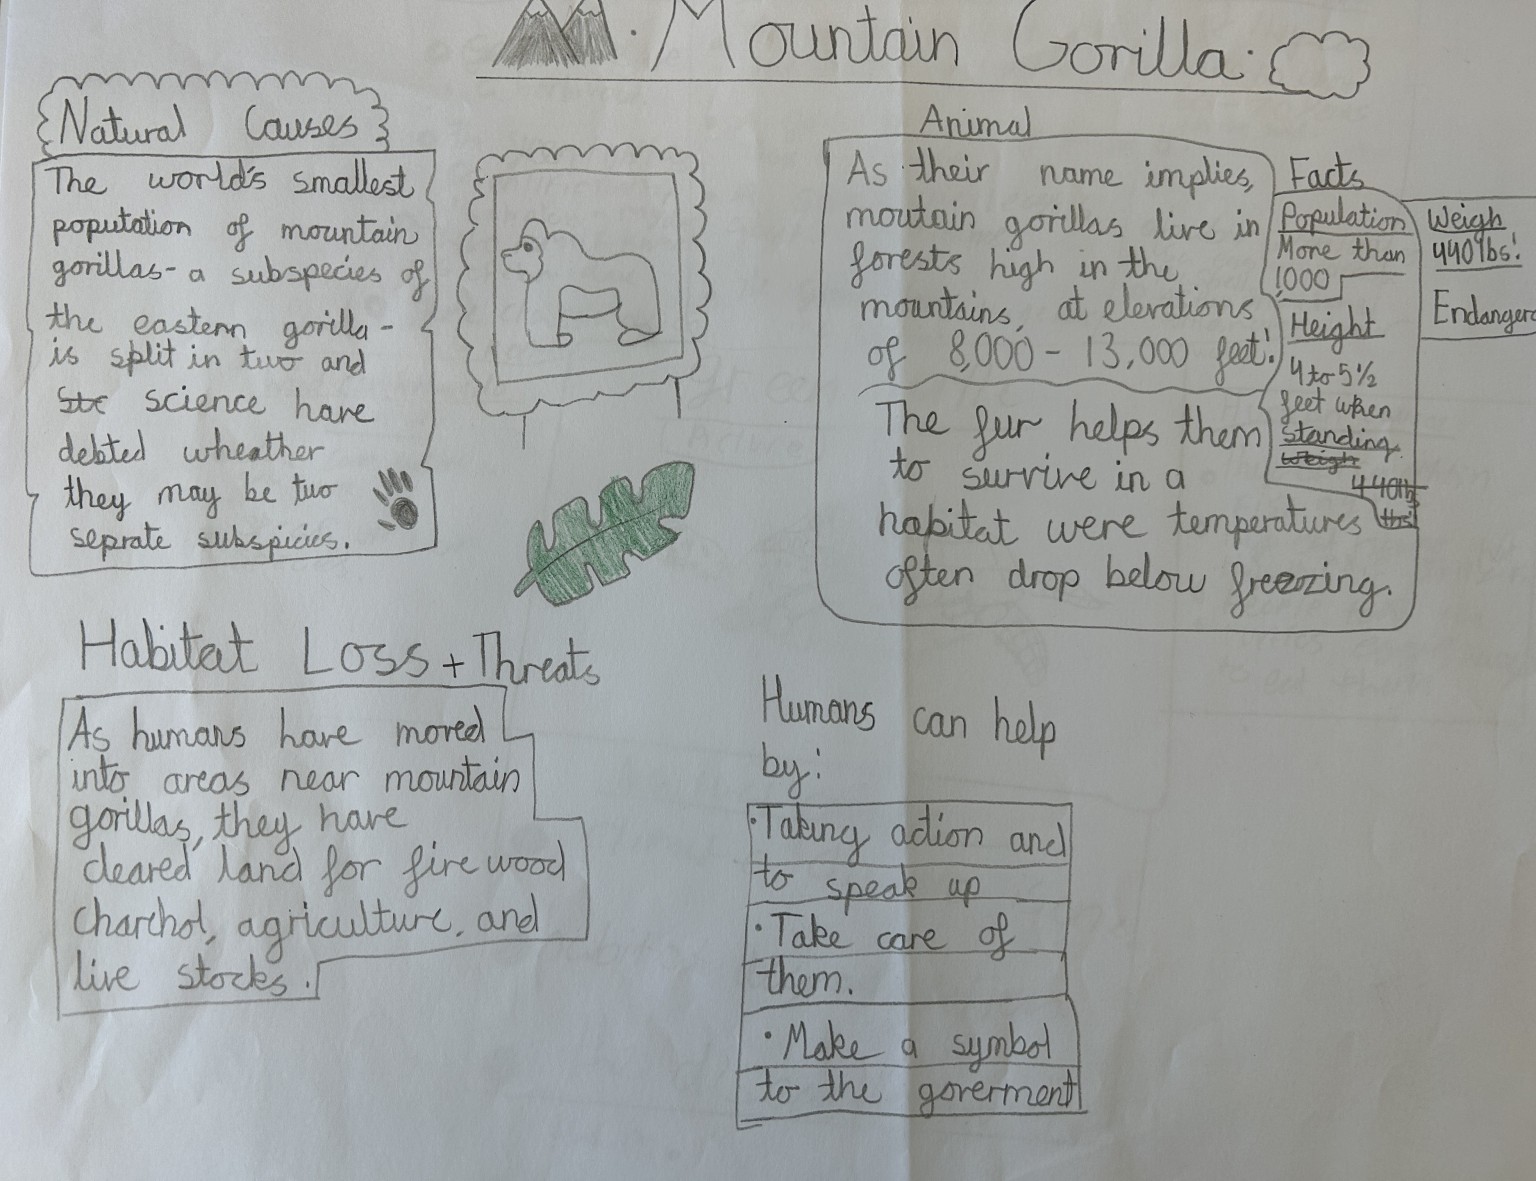 Mountain Gorilla
Natural Causes
The world's smallest
poputation of mountain
gorillas - a subspecies of
the eastern gorilla -
is split in two and
Stc science have
debted wheather
they may be two
seprate subspicies.
Animal
As their name implies,
moutain gorillas live in
forests high in the
mountains, at elevations
of 8,000 - 13,000 feet!
The fur helps them
to survive in a
habitat were temperatures
often drop below freezing.
Facts
Population
More than
1000
Height
4 to 5½
feet when
standing.
Weigh
440lbs
lbs!
Weigh
440lbs!
Endangere
Habitat Loss + Threats
As humans have moved
into areas near mountain
gorillas, they have
cleared land for fire wood
charchol, agriculture, and
live stocks.
Humans can help
by:
• Taking action and
to speak up
• Take care of
them.
• Make a symbol
to the goverment